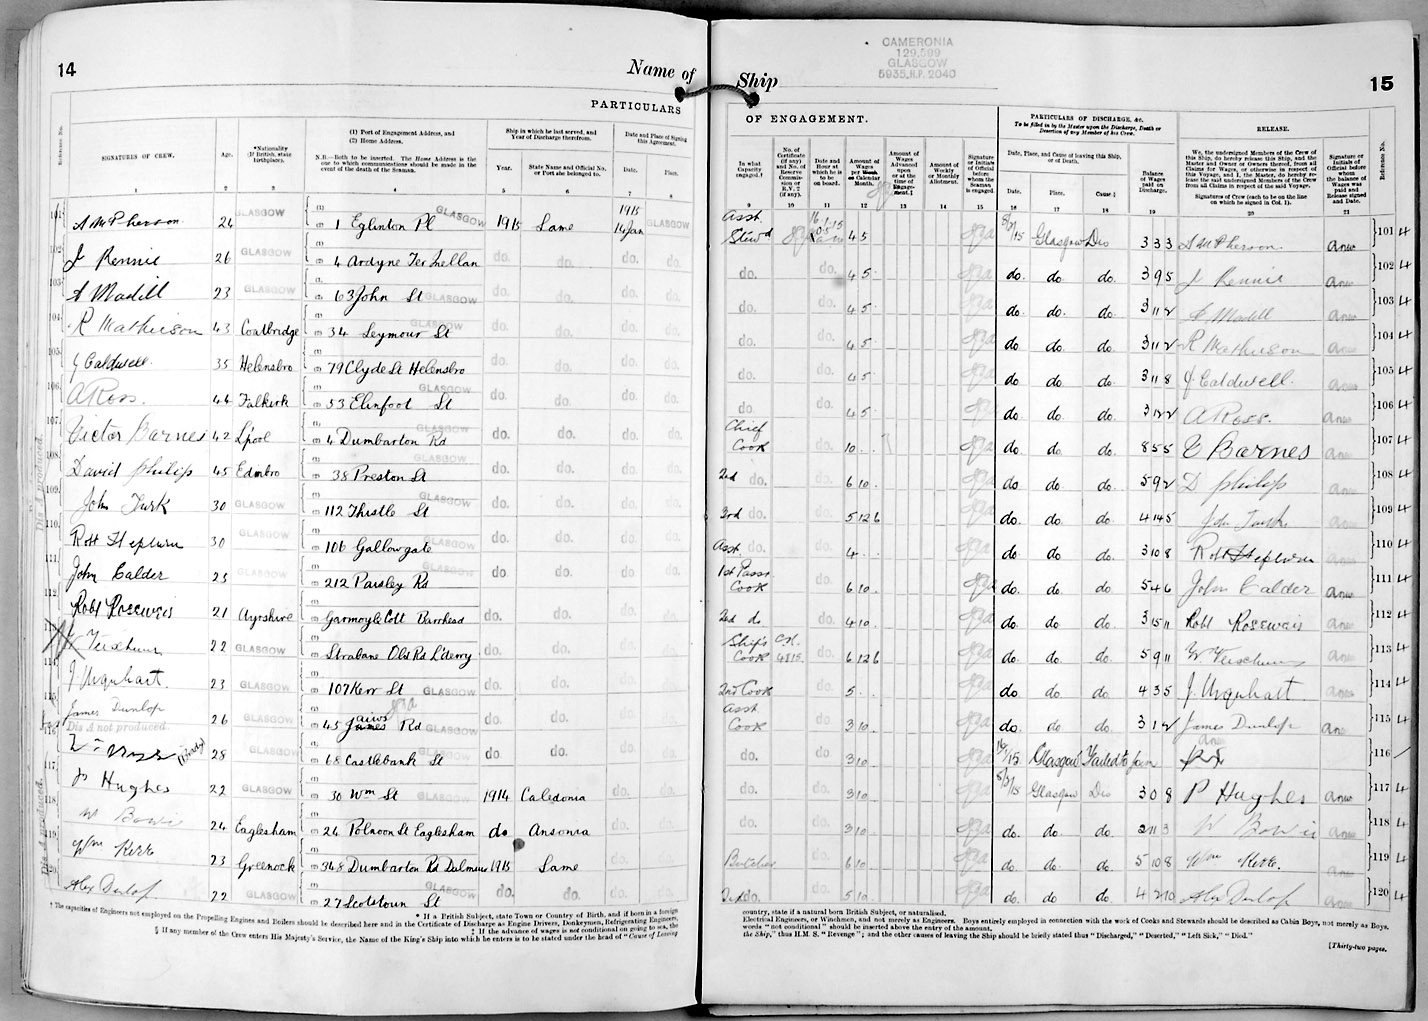 14
Name of Ship
CAMERONIA
129,599
GLASGOW
5935.H.P. 2040
15
PARTICULARS OF ENGAGEMENT.
PARTICULARS OF DISCHARGE, &c.
To be filled in by the Master upon the Discharge, Death or Desertion of any Member of his Crew.
RELEASE.
Reference No.
SIGNATURES OF CREW.
Age.
*Nationality (If British, state birthplace).
(1) Port of Engagement Address, and
(2) Home Address.
N.B.—Both to be inserted. The Home Address is the one to which communications should be made in the event of the death of the Seaman.
Ship in which he last served, and Year of Discharge therefrom.
Year.
State Name and Official No. or Port she belonged to.
Date and Place of Signing this Agreement.
Date.
Place.
In what Capacity engaged.†
No. of Certificate (if any) and No. of Reserve Commission or R.V.2 (if any).
Date and Hour at which he is to be on board.
Amount of Wages per Week or Calendar Month.
Amount of Wages Advanced upon or at the time of Engagement.‡
Amount of Weekly or Monthly Allotment.
Signature or Initials of Official before whom the Seaman is engaged.
Date, Place, and Cause of leaving this Ship, or of Death.
Date.
Place.
Cause
Balance of Wages paid on Discharge.
We, the undersigned Members of the Crew of this Ship, do hereby release this Ship, and the Master and Owner or Owners thereof, from all Claims for Wages, or otherwise in respect of this Voyage, and I, the Master, do hereby release the said undersigned Members of the Crew from all Claims in respect of the said Voyage.
Signatures of Crew (each to be on the line on which he signed in Col. 1).
Signature or Initials of Official before whom the balance of Wages was paid and Release signed and Date.
Reference No.
1 2 3 4 5 6 7 8 9 10 11 12 13 14 15 16 17 18 19 20 21
101 A McPherson 24 GLASGOW 1 Eglinton Pl GLASGOW 1915 Same 1915 14 Jan GLASGOW Asst. Stewd 4 5 Glasgow Dis 3 3 3 A McPherson 101 4
102 J Rennie 26 GLASGOW 4 Ardyne Ter Inellan do. do. do. do. do. do. 4 5 do. do. do. 3 9 5 J Rennie 102 4
103 A Madill 23 GLASGOW 63 John St GLASGOW do. do. do. do. do. do. 4 5 do. do. do. 3 11 2 A Madill 103 4
104 R Mathieson 43 Coatbridge 34 Seymour St GLASGOW do. do. do. do. do. do. 4 5 do. do. do. 3 11 2 R Mathieson 104 4
105 J Caldwell 35 Helensbro 79 Clyde St Helensbro do. do. do. do. do. do. 4 5 do. do. do. 3 11 8 J Caldwell 105 4
106 A Ross. 44 Falkirk 53 Elinfoot St GLASGOW do. do. do. do. do. do. 4 5 do. do. do. 3 12 2 A Ross. 106 4
107 Victor Barnes 42 L'pool 4 Dumbarton Rd GLASGOW do. do. do. do. Chief Cook do. 10 do. do. do. 8 5 5 V Barnes 107 4
108 David Philip 45 Edinbro 38 Preston St GLASGOW do. do. do. do. 2nd do. do. 6 10 do. do. do. 5 9 2 D Philip 108 4
109 John Turk 30 GLASGOW 112 Thistle St GLASGOW do. do. do. do. 3rd do. do. 5 12 6 do. do. do. 4 14 5 109 4
110 Robt Hepburn 30 GLASGOW 106 Gallowgate GLASGOW do. do. do. do. Asst. do. do. 4 do. do. do. 3 10 8 Robt Hepburn 110 4
111 John Calder 25 GLASGOW 212 Paisley Rd do. do. do. do. 1st Passr Cook do. 6 10 do. do. do. 5 4 6 John Calder 111 4
112 Robt Roseweis 21 Ayrshire Garmoyle Cott Barrhead do. do. do. do. 2nd do do. 4 10 do. do. do. 3 15 11 Robt Roseweis 112 4
22 GLASGOW Strabane Old Rd L'derry do. do. do. do. Ship's Cook 4815 do. 6 12 6 do. do. do. 5 9 11 113 4
114 J. Urquhart. 23 GLASGOW 107 Kerr St GLASGOW do. do. do. do. 2nd Cook do. 5 do do. do. 4 3 5 J. Urquhart 114 4
James Dunlop 26 GLASGOW 45 James Rd GLASGOW do. do. do. do. Asst Cook do. 3 10 do. do. do. 3 1 2 James Dunlop 115 4
Dis A not produced
116 28 GLASGOW 68 Castlebank St GLASGOW do. do. do. do. do. do. 3 10 Glasgow Failed to join 116
117 P Hughes 22 GLASGOW 30 Wm St GLASGOW 1914 Caledonia do. do. do. do. 3 10 Glasgow Dis 3 0 8 P Hughes 117 4
118 W Bowie 24 Eaglesham 26 Polnoon St Eaglesham do Ansonia do. do. do. do. 3 10 do. do. do. 2 11 3 W Bowie 118 4
119 Wm Kerr 23 Greenock 348 Dumbarton Rd Dalmuir 1915 Same do. do. Butcher do. 6 10 do. do. do. 5 10 8 Wm Kerr. 119 4
120 Alex Dunlop 22 GLASGOW 27 Scotstoun St GLASGOW do. do. do. do. 2nd do. do. 5 10 do. do. do. 4 2 10 Alex Dunlop 120 4
Dis A produced.
Dis A produced.
† The capacities of Engineers not employed on the Propelling Engines and Boilers should be described here and in the Certificate of Discharge as Engine Drivers, Donkeymen, Refrigerating Engineers,
* If a British Subject, state Town or Country of Birth, and if born in a foreign country, state if a natural born British Subject, or naturalised.
Electrical Engineers, or Winchmen, and not merely as Engineers. Boys entirely employed in connection with the work of Cooks and Stewards should be described as Cabin Boys, not merely as Boys.
‡ If the advance of wages is not conditional on going to sea, the words "not conditional" should be inserted above the entry of the amount.
§ If any member of the Crew enters His Majesty's Service, the Name of the King's Ship into which he enters is to be stated under the head of "Cause of Leaving the Ship," thus H.M.S. "Revenge"; and the other causes of leaving the Ship should be briefly stated thus "Discharged," "Deserted," "Left Sick," "Died."
[Thirty-two pages.